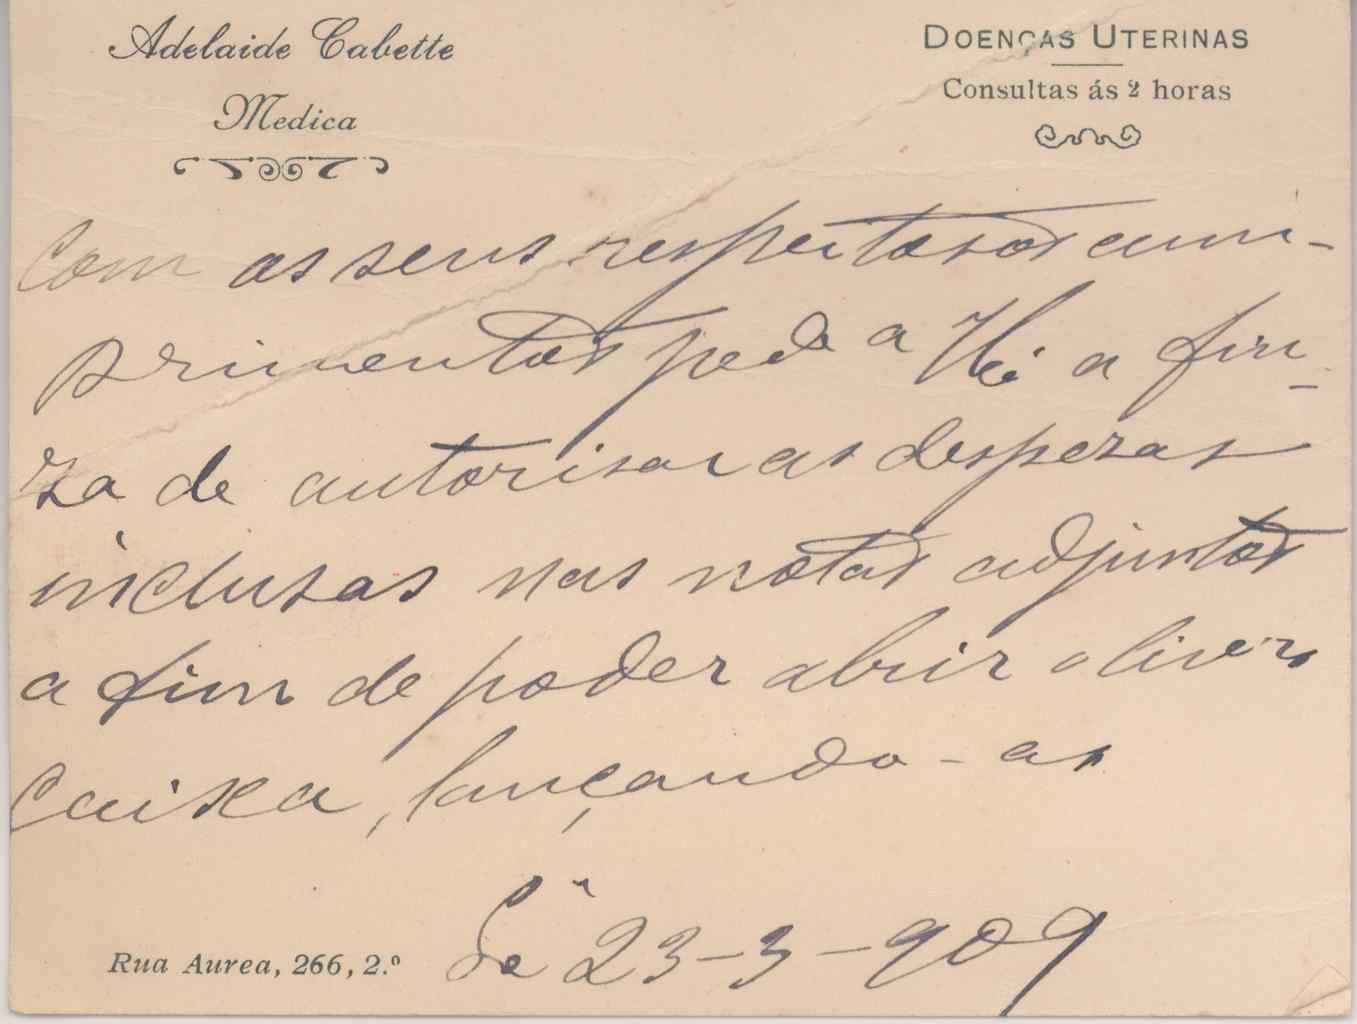 Adelaide Cabette
Medica
DOENÇAS UTERINAS
Consultas ás 2 horas
Com os seus respeitosos cum-
primentos pede a V. Ex.ª a fine-
za de autorisar as despezas
inclusas nas notas adjuntas
a fim de poder abrir o livro
Caixa, lançando-as
Rua Aurea, 266, 2.º
23-3-909